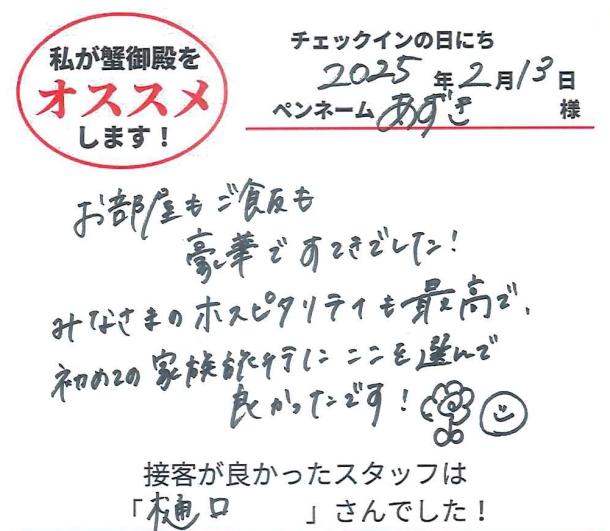 私が蟹御殿を
オススメ
します！
チェックインの日にち
2025年2月13日
ペンネーム あずき 様
お部屋もご飯も
豪華ですてきでした！
みなさまのホスピタリティも最高で、
初めての家族旅行にここを選んで
良かったです！
接客が良かったスタッフは
「樋口」さんでした！